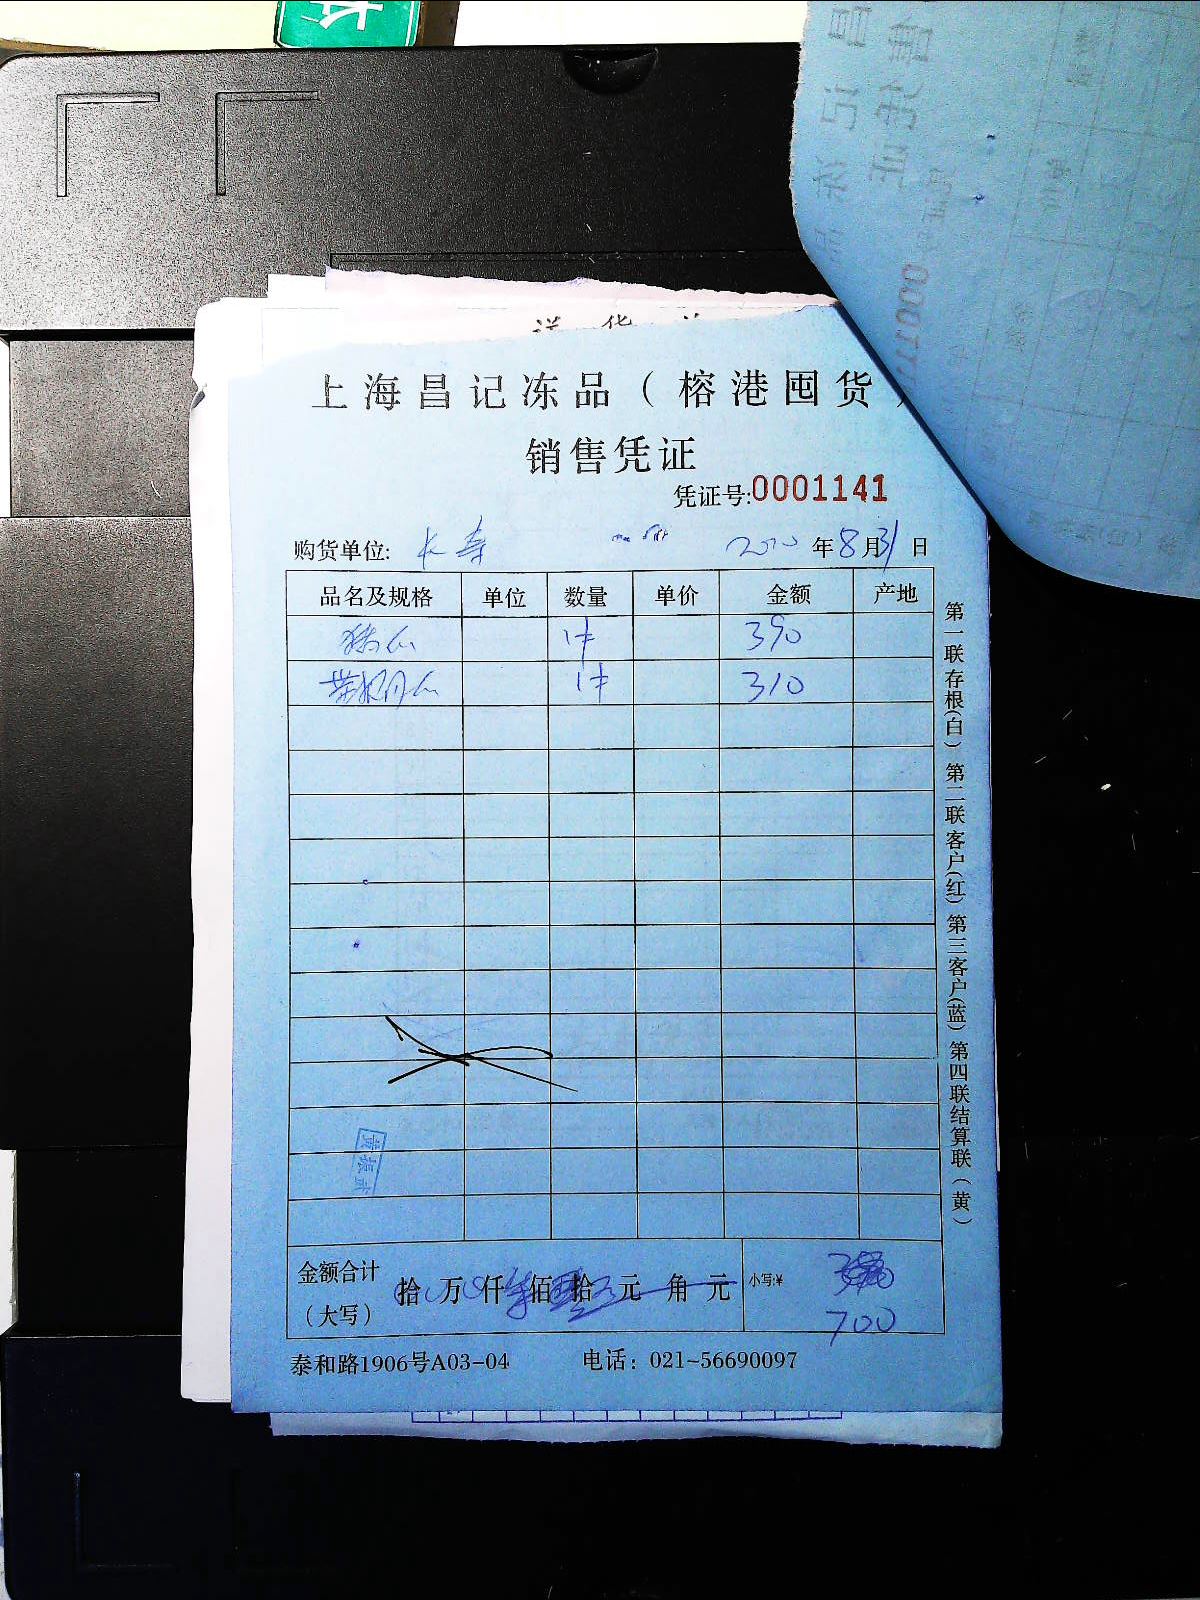 上海昌记冻品（榕港囤货）
销售凭证
凭证号:0001141
购货单位: 长寿 2020年8月31日
品名及规格 单位 数量 单价 金额 产地
1件 390
1件 310
金额合计（大写） 拾 万 仟 佰 拾 元 角 元 小写:¥ 700
泰和路1906号A03-04 电话：021-56690097
第一联存根（白）第二联客户（红）第三客户（蓝）第四联结算联（黄）